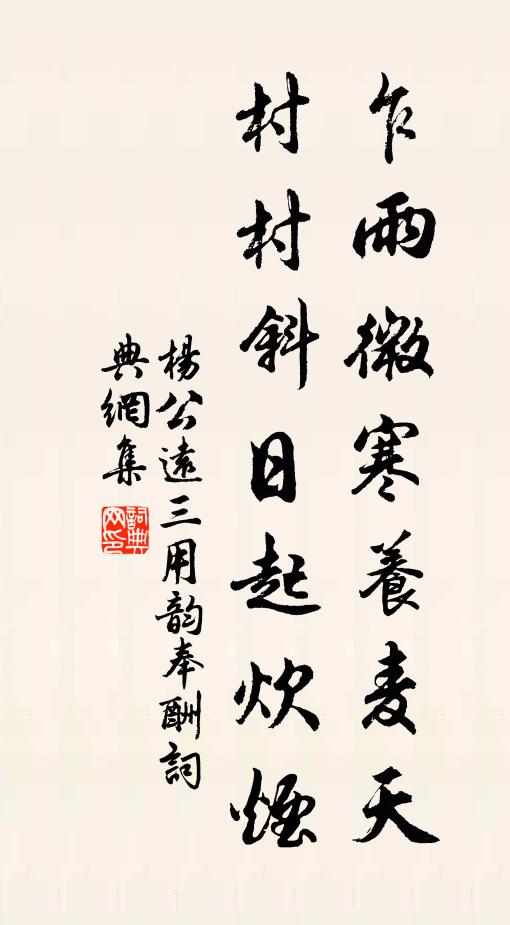 乍雨微寒養麦天
村村斜日起炊煙
楊公遠三用韵奉酬詞
典網集
詞典网印